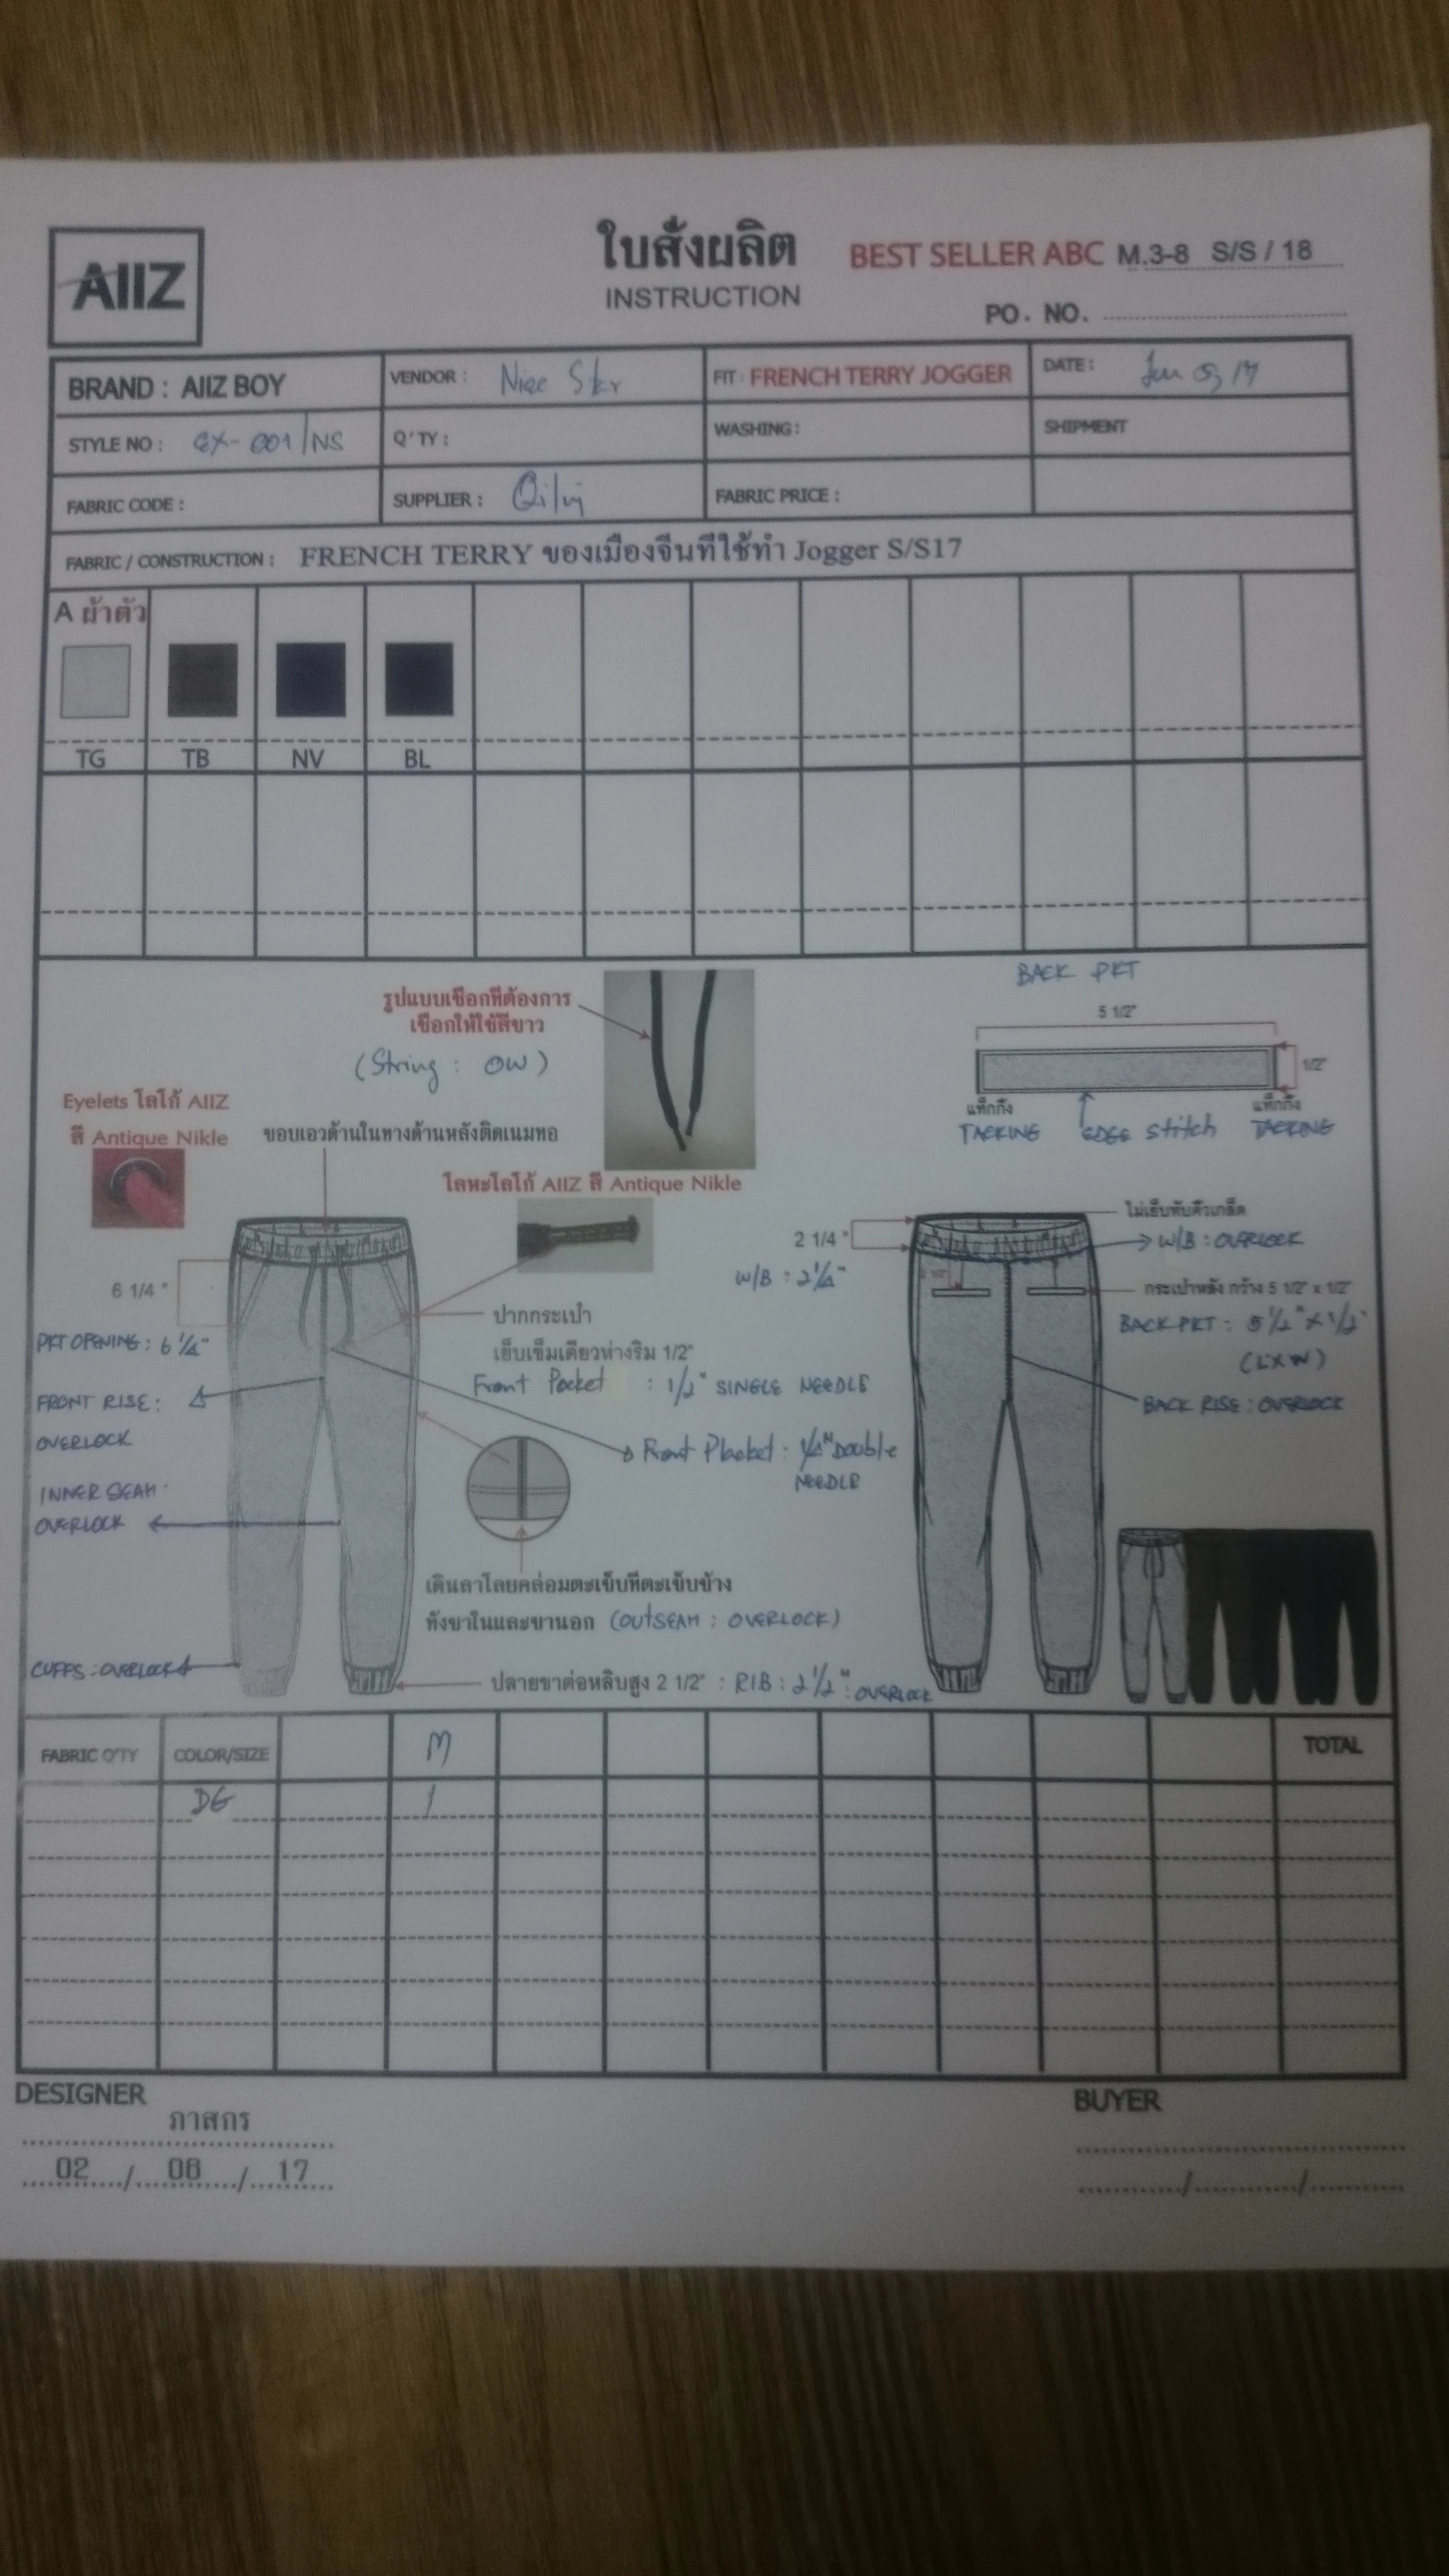 AIIZ
ใบสั่งผลิต
INSTRUCTION
BEST SELLER ABC M.3-8 S/S / 18
PO. NO.
BRAND : AIIZ BOY
VENDOR : Nice Star
FIT : FRENCH TERRY JOGGER
DATE :
STYLE NO : 001/NS
Q'TY :
WASHING :
SHIPMENT
FABRIC CODE :
SUPPLIER :
FABRIC PRICE :
FABRIC / CONSTRUCTION : FRENCH TERRY ของเมืองจีนที่ใช้ทำ Jogger S/S17
A ผ้าตัว
TG TB NV BL
รูปแบบเชือกที่ต้องการ
เชือกให้ใช้สีขาว
(String : OW)
BACK PKT
5 1/2"
1/2"
แท็กกิ้ง
แท็กกิ้ง
TACKING EDGE Stitch TACKING
Eyelets โลโก้ AIIZ
สี Antique Nikle
ขอบเอวด้านในทางด้านหลังติดเนมทอ
โลหะโลโก้ AIIZ สี Antique Nikle
6 1/4 "
PKT OPENING : 6 1/4"
FRONT RISE :
OVERLOCK
INNER SEAM :
OVERLOCK
CUFFS : OVERLOCK
ปากกระเป๋า
เย็บเข็มเดียวห่างริม 1/2"
Front Pocket : 1/2" SINGLE NEEDLE
Front Placket : 1/4" Double
NEEDLE
เดินลาโลยคล่อมตะเข็บที่ตะเข็บข้าง
ทั้งขาในและขานอก (OUTSEAM : OVERLOCK)
ปลายขาต่อหลิบสูง 2 1/2" : RIB : 2 1/2" : OVERLOCK
2 1/4 "
W/B : 2 1/4"
2 1/2"
ไม่เย็บทับคิ้วเกล็ด
W/B : OVERLOCK
กระเป๋าหลัง กว้าง 5 1/2" x 1/2"
BACK PKT : 5 1/2" X 1/2"
(L X W)
BACK RISE : OVERLOCK
FABRIC Q'TY COLOR/SIZE M TOTAL
DG 1
DESIGNER
ภาสกร
02 / 06 / 17
BUYER